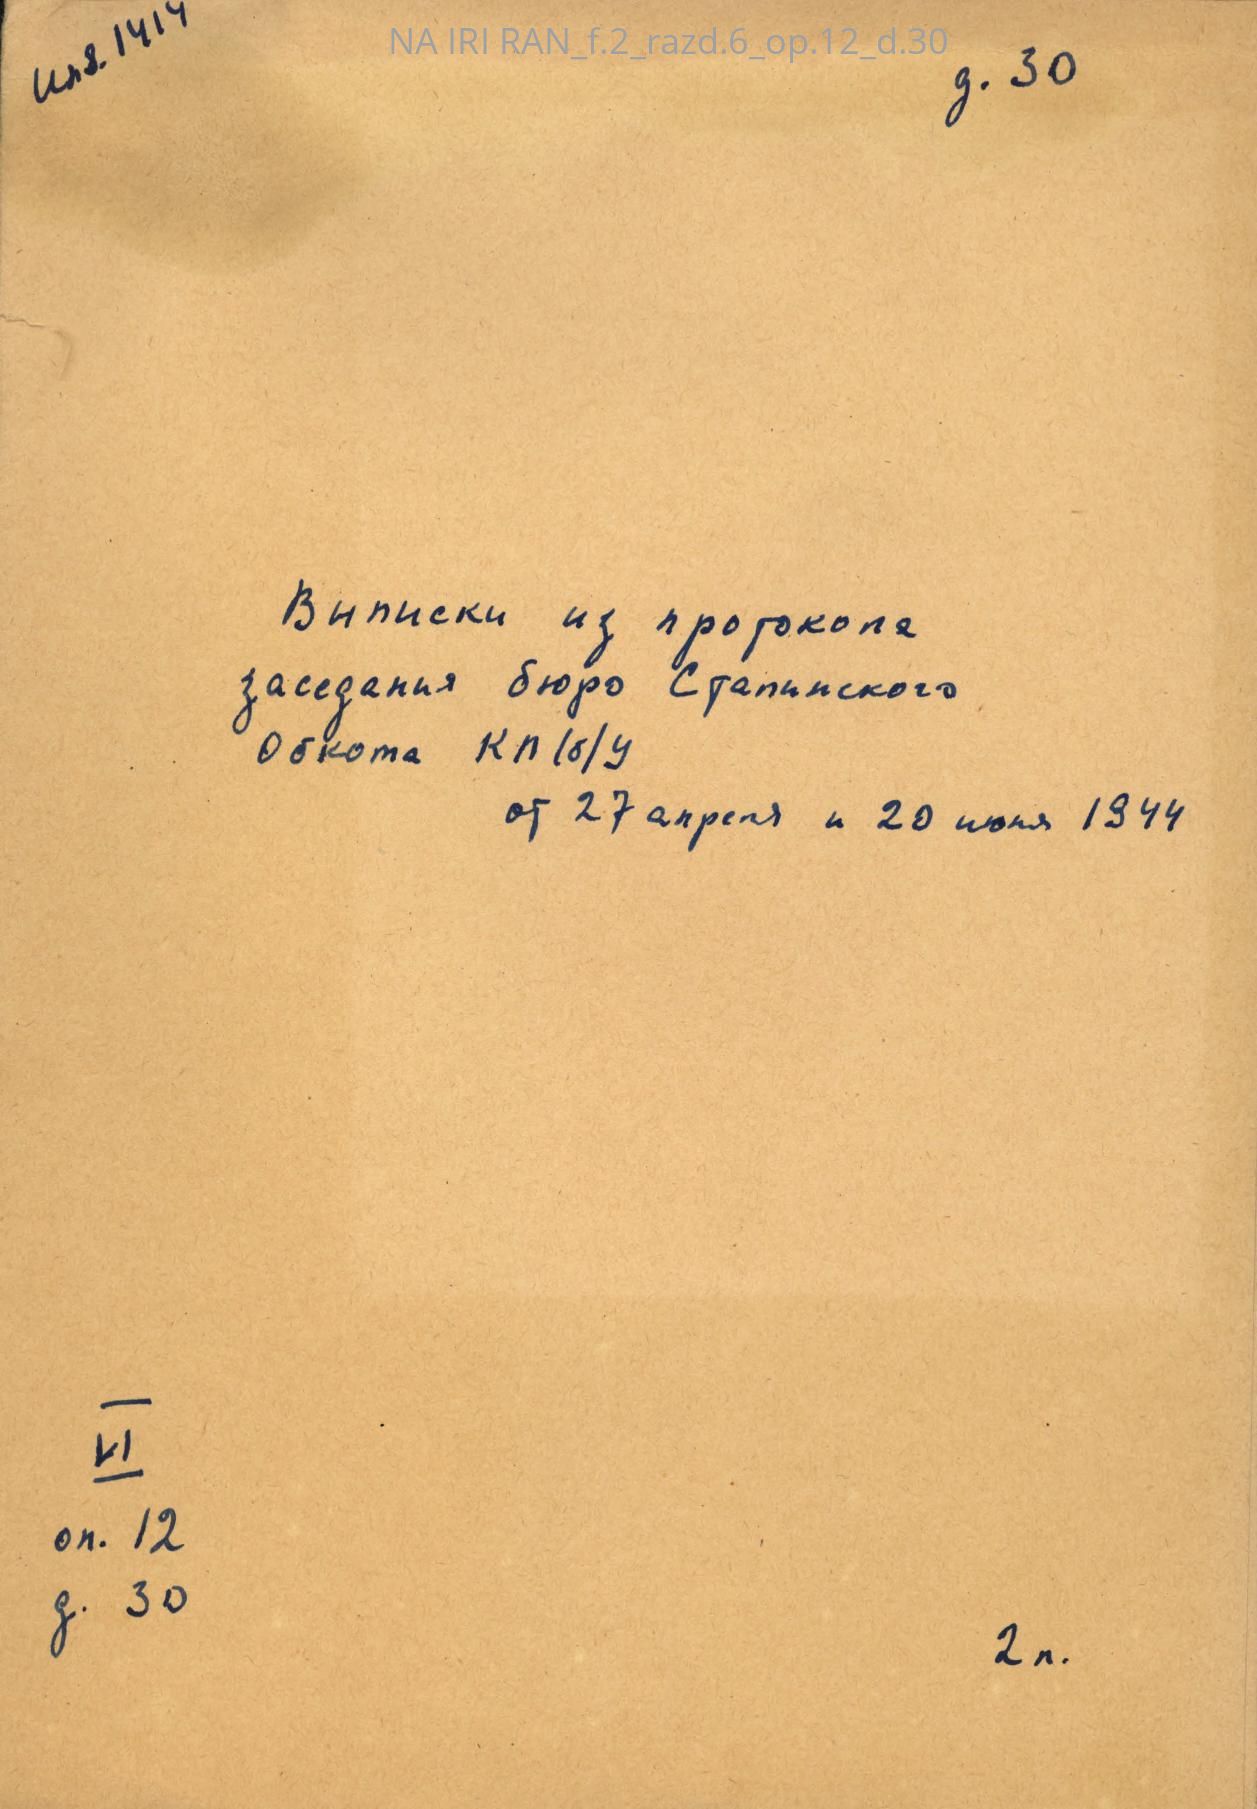 NA IRI RAN_f.2_razd.6_op.12_d.30
Инв. 1414
д. 30
Выписки из протокола
заседания бюро Сталинского
Обкома КП/б/У
от 27 апреля и 20 июня 1944
VI
оп. 12
д. 30
2 л.